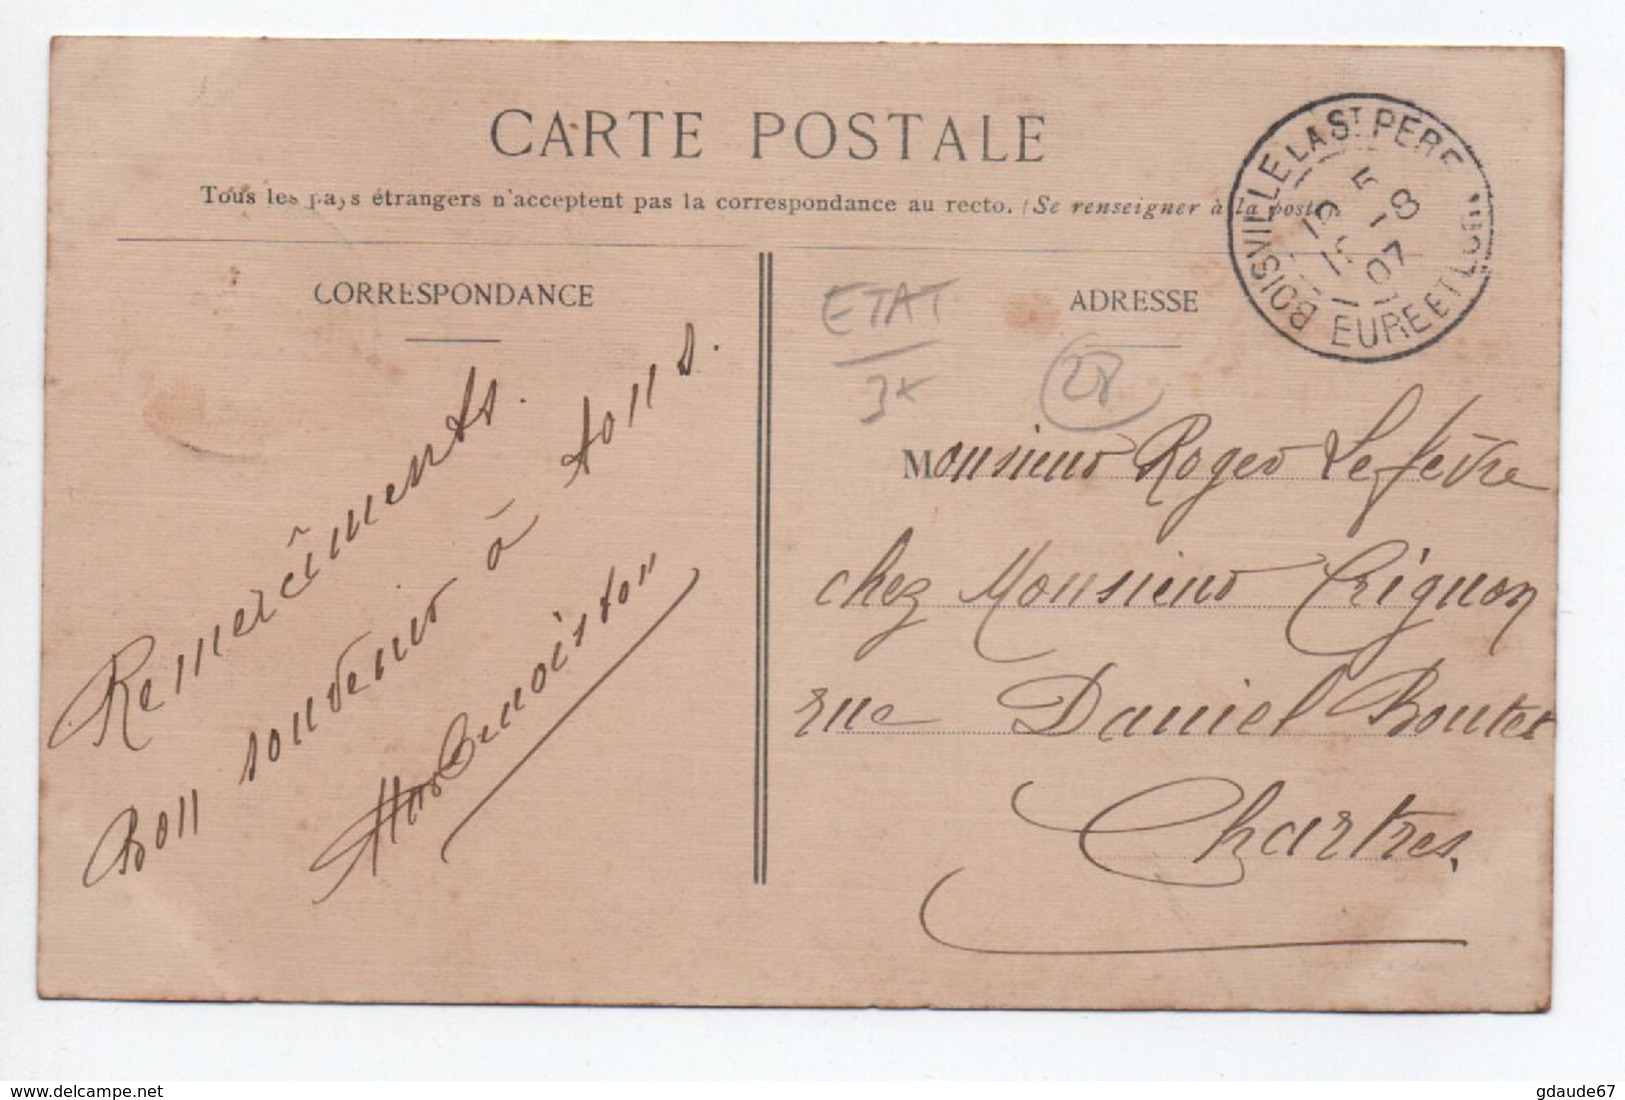 CARTE POSTALE
Tous les pays étrangers n'acceptent pas la correspondance au recto. (Se renseigner à la poste)
CORRESPONDANCE
ADRESSE
BOISVILLE LA ST PÈRE
EURE ET LOIR
5 8
07
ETAT
3x
28
Remercîments.
Bon souvenir à tous.
Monsieur Roger Lefèvre
chez Monsieur Crignon
rue Daniel Boutet
Chartres.
www.delcampe.net
gdaude67